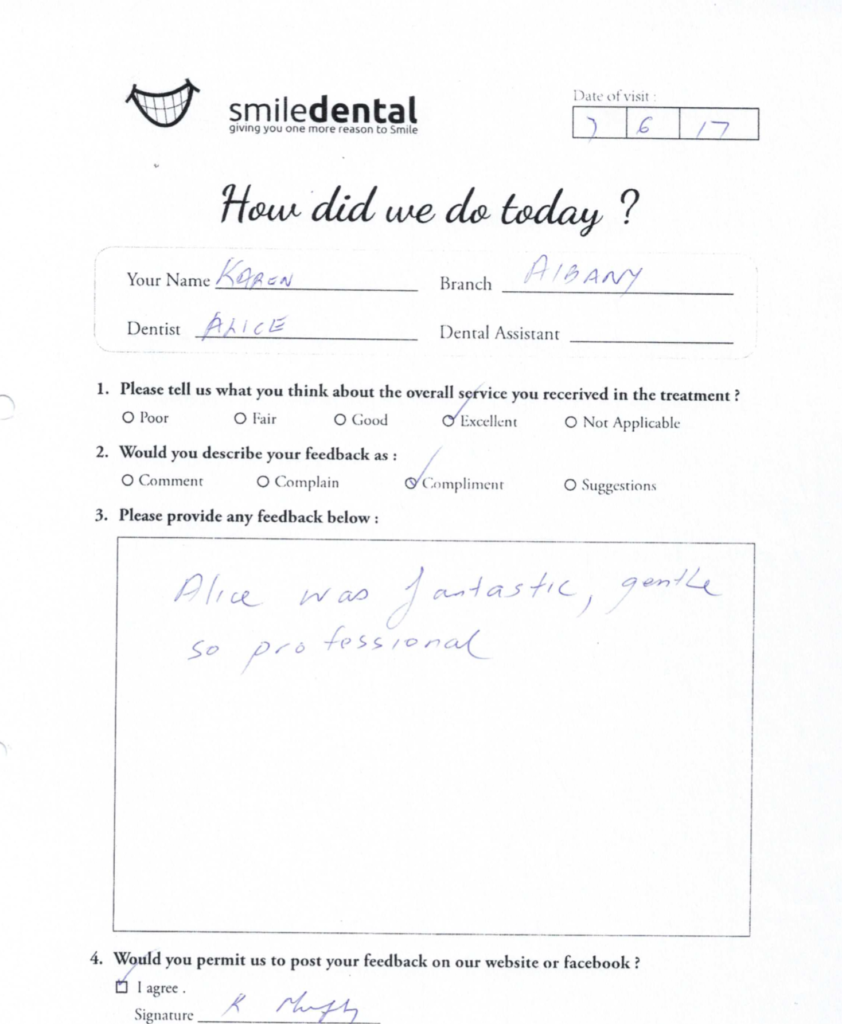 smiledental
giving you one more reason to Smile
Date of visit :
7 6 17
How did we do today ?
Your Name KAREN Branch ALBANY
Dentist ALICE Dental Assistant
1. Please tell us what you think about the overall service you recerived in the treatment ?
Poor Fair Good Excellent Not Applicable
2. Would you describe your feedback as :
Comment Complain Compliment Suggestions
3. Please provide any feedback below :
Alice was fantastic, gentle
so professional
4. Would you permit us to post your feedback on our website or facebook ?
I agree .
Signature K